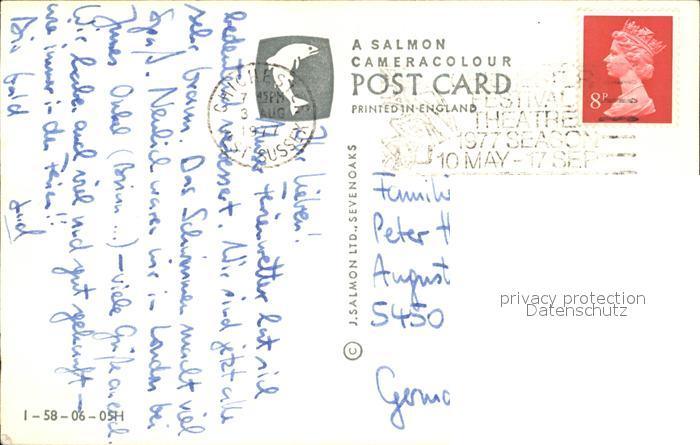 A SALMON
CAMERACOLOUR
POST CARD
PRINTED IN ENGLAND
© J. SALMON LTD., SEVENOAKS
8P
CHICHESTER
7 45PM
3 AUG
1977
SUSSEX
FESTIVAL
THEATRE
1977 SEASON
10 MAY - 17 SEP
Ihr Lieben!
Unser Ferienwetter hat sich
bedeutend verbessert. Wir sind jetzt alle
sehr braun. Das Schwimmen macht viel
Spaß. Neulich waren wir in London bei
Onkel (Brian ...) – viele Grüße an euch.
Wir haben auch viel und gut gekauft –
wie immer in den Ferien!!
Bis bald
Famili
Peter H
August
5450
Germa
privacy protection
Datenschutz
1-58-06-05H